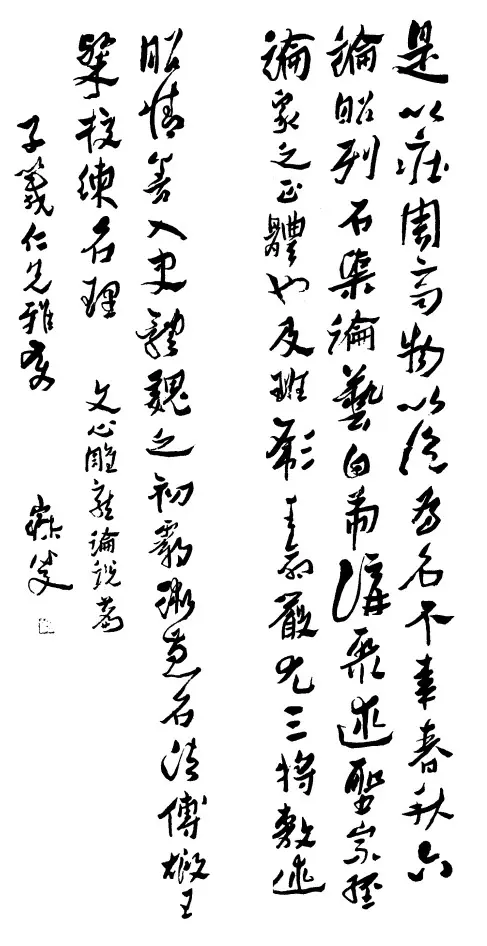 是以莊周齊物以論為名不韋春秋六
論昭列石渠論藝白虎講聚述聖宗經
論家之正體也及班彪王命嚴尤三將敷述
昭情善入史體魏之初霸術兼名法傅嘏王
粲校練名理
文心雕龍論說篇
子仁兄雅
寐叟